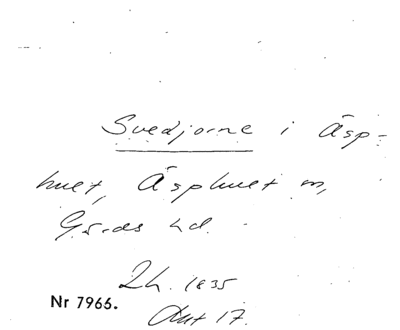 Svedjorne i Äsp-
huet, Äsphuet m,
Gärds hd.
Lh. 1835
Nr 7966.
Akt 17.